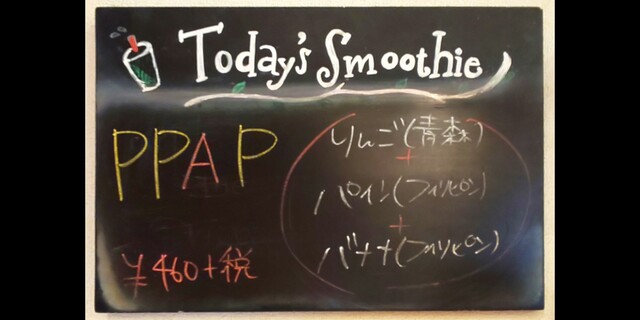 Today's Smoothie
PPAP
りんご(青森)
+
パイン(フィリピン)
+
バナナ(フィリピン)
¥460+税